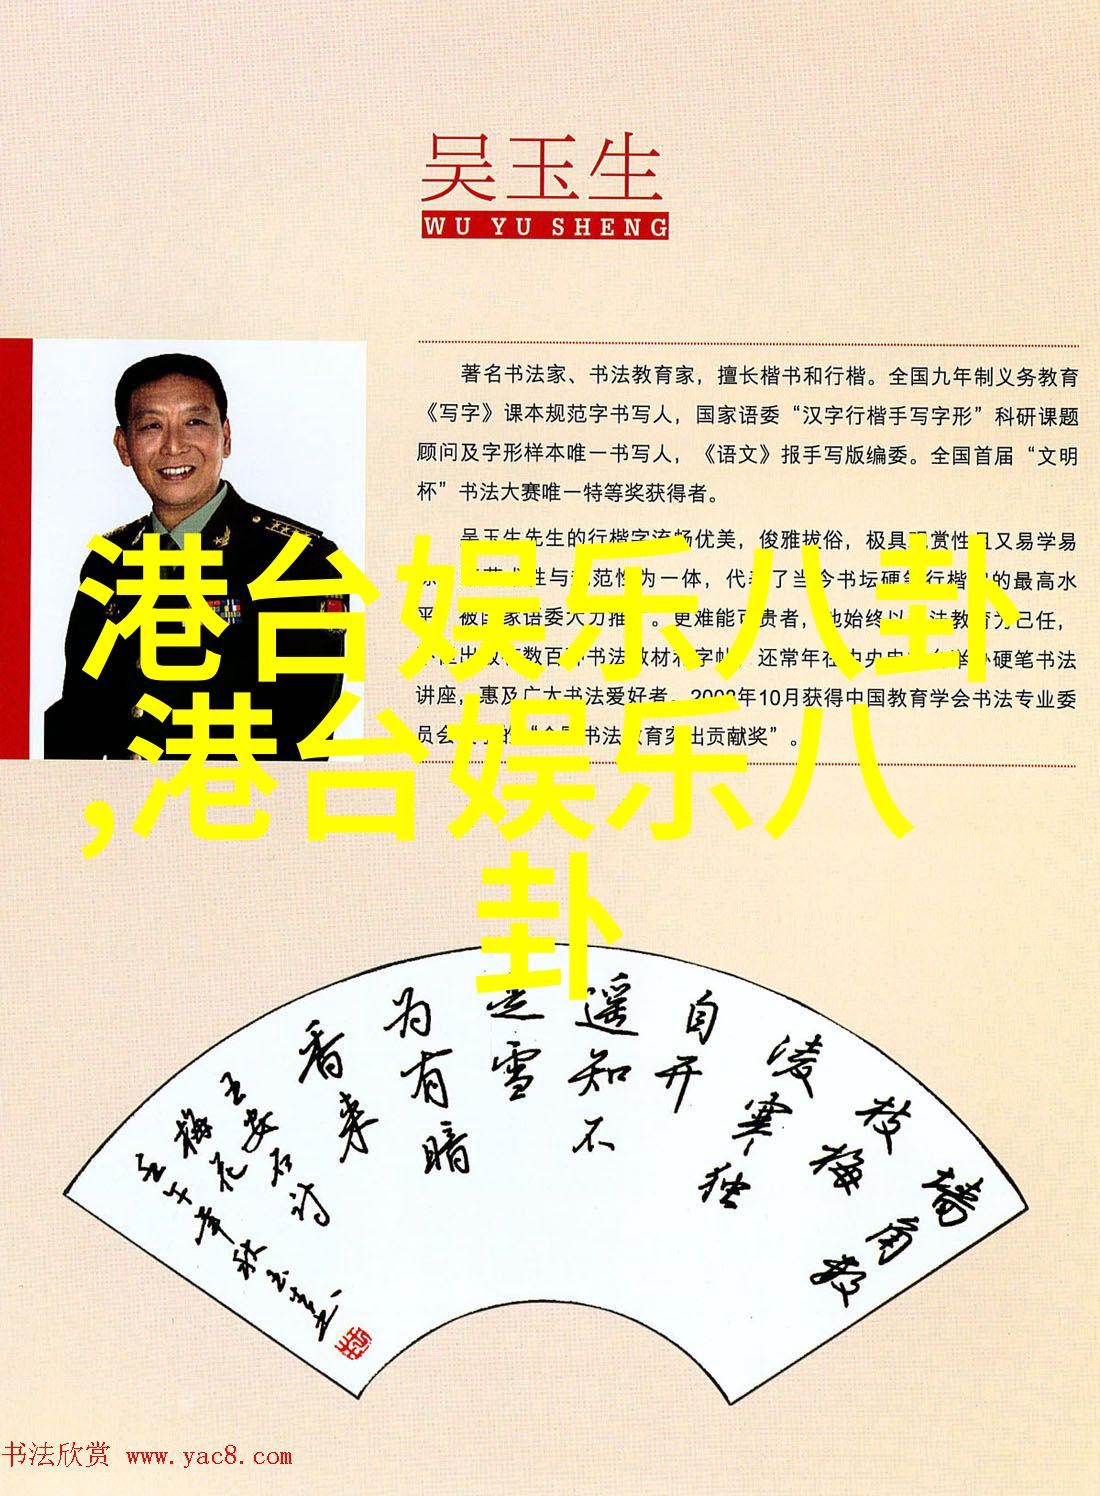 吴玉生
WU YU SHENG
著名书法家、书法教育家，擅长楷书和行楷。全国九年制义务教育
《写字》课本规范字书写人，国家语委“汉字行楷手写字形”科研课题
顾问及字形样本唯一书写人，《语文》报手写版编委。全国首届“文明
杯”书法大赛唯一特等奖获得者。
吴玉生先生的行楷字流畅优美，俊雅拔俗，极具观赏性且又易学易
性与 范性为一体，代表了当今书坛硬笔行楷 的最高水
被国家语委大力推 。更难能可贵者，他始终以 法教育为己任，
出版 数百 书法教材和字帖，还常年在中央电 举办硬笔书法
讲座，惠及广大书法爱好者。2002年10月获得中国教育学会书法专业委
员会 的“全国书法教育突出贡献奖”。
港台娱乐八卦
,港台娱乐八
卦
墙角数
枝梅
凌寒独
自开
遥知不
是雪
为有暗
香来
王安石诗
梅花
壬午年秋玉生书
书法欣赏 www.yac8.com